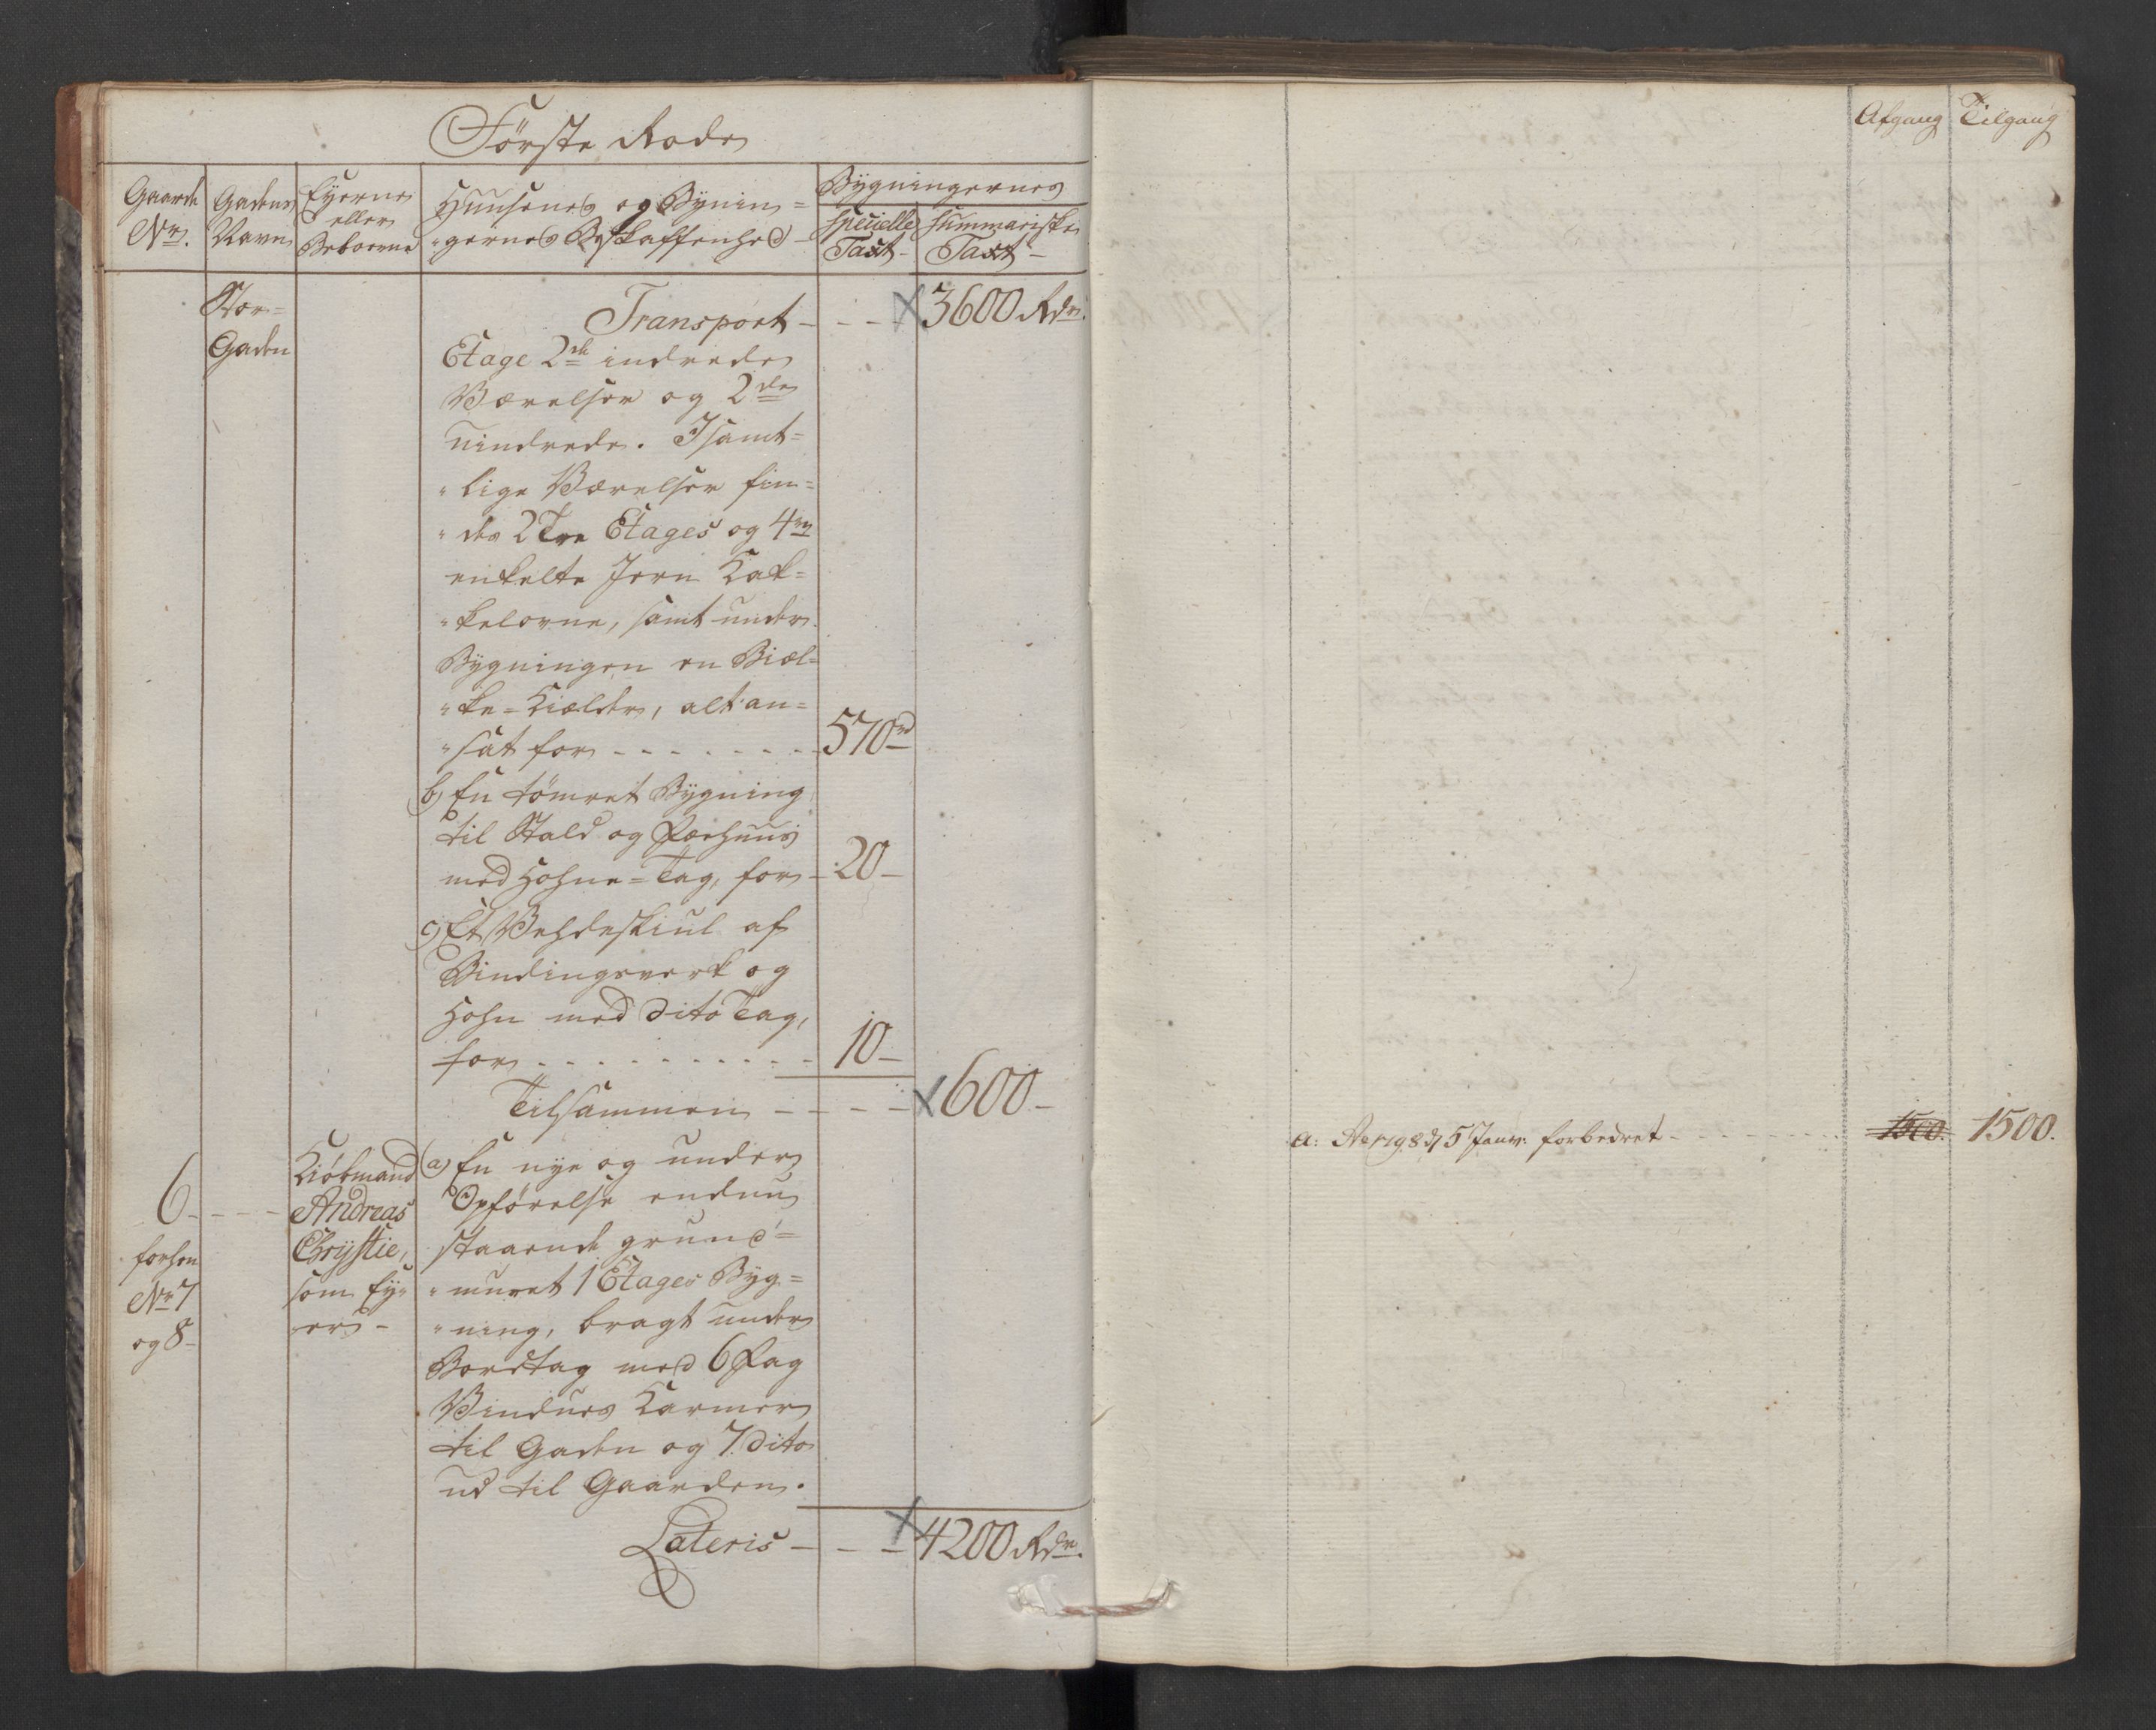 Förste Rode
Gaarde No.
Gadens Navn
Eyerne eller Beboerne
Huusenes og Bÿnin=
"gernes Beskaffenhed
Bÿgningernes
specielle Taxt -
summariske Taxt -
Stor=
Gaden
Transport - - - 3600 Rdr.
Etage 2de indrede
Værelser og 2de
uindrede. I samt=
"lige Værelser fin=
"des 2 Tve Etages og 4re
enkelte Jern Kak=
"kelovne, samt under
Bÿgningen en Biæl=
"ke=Kielder, alt an=
"sat for - - - - - - - - 570rd
b) En tömret Bÿgning
til Stald og Fæehuus
med Hohne=Tag, for - 20 -
c) Et Vehdeskiul af
Bindingsverk og
Hohn med dito Tag,
for - - - - - - - - - - 10 -
Tilsammen - - - - 600 -
6 - - - -
forhen
No 7
og 8 -
Kiöbmand
Andreas
Chrÿstie,
som Eÿ=
"er -
a) En nye og under
Opförelse endnu
staaende grund=
"muret 1 Etages Bÿg=
"ning, bragt under
Bordtag med 6 Fag
Vindues Karmer
til Gaden og 7 dito
ud til Gaarden.
Lateris - - - 4200 Rdr.
Afgang Tilgang
a: 5 Janv. forbedret - - - - - - - 1500. 1500.